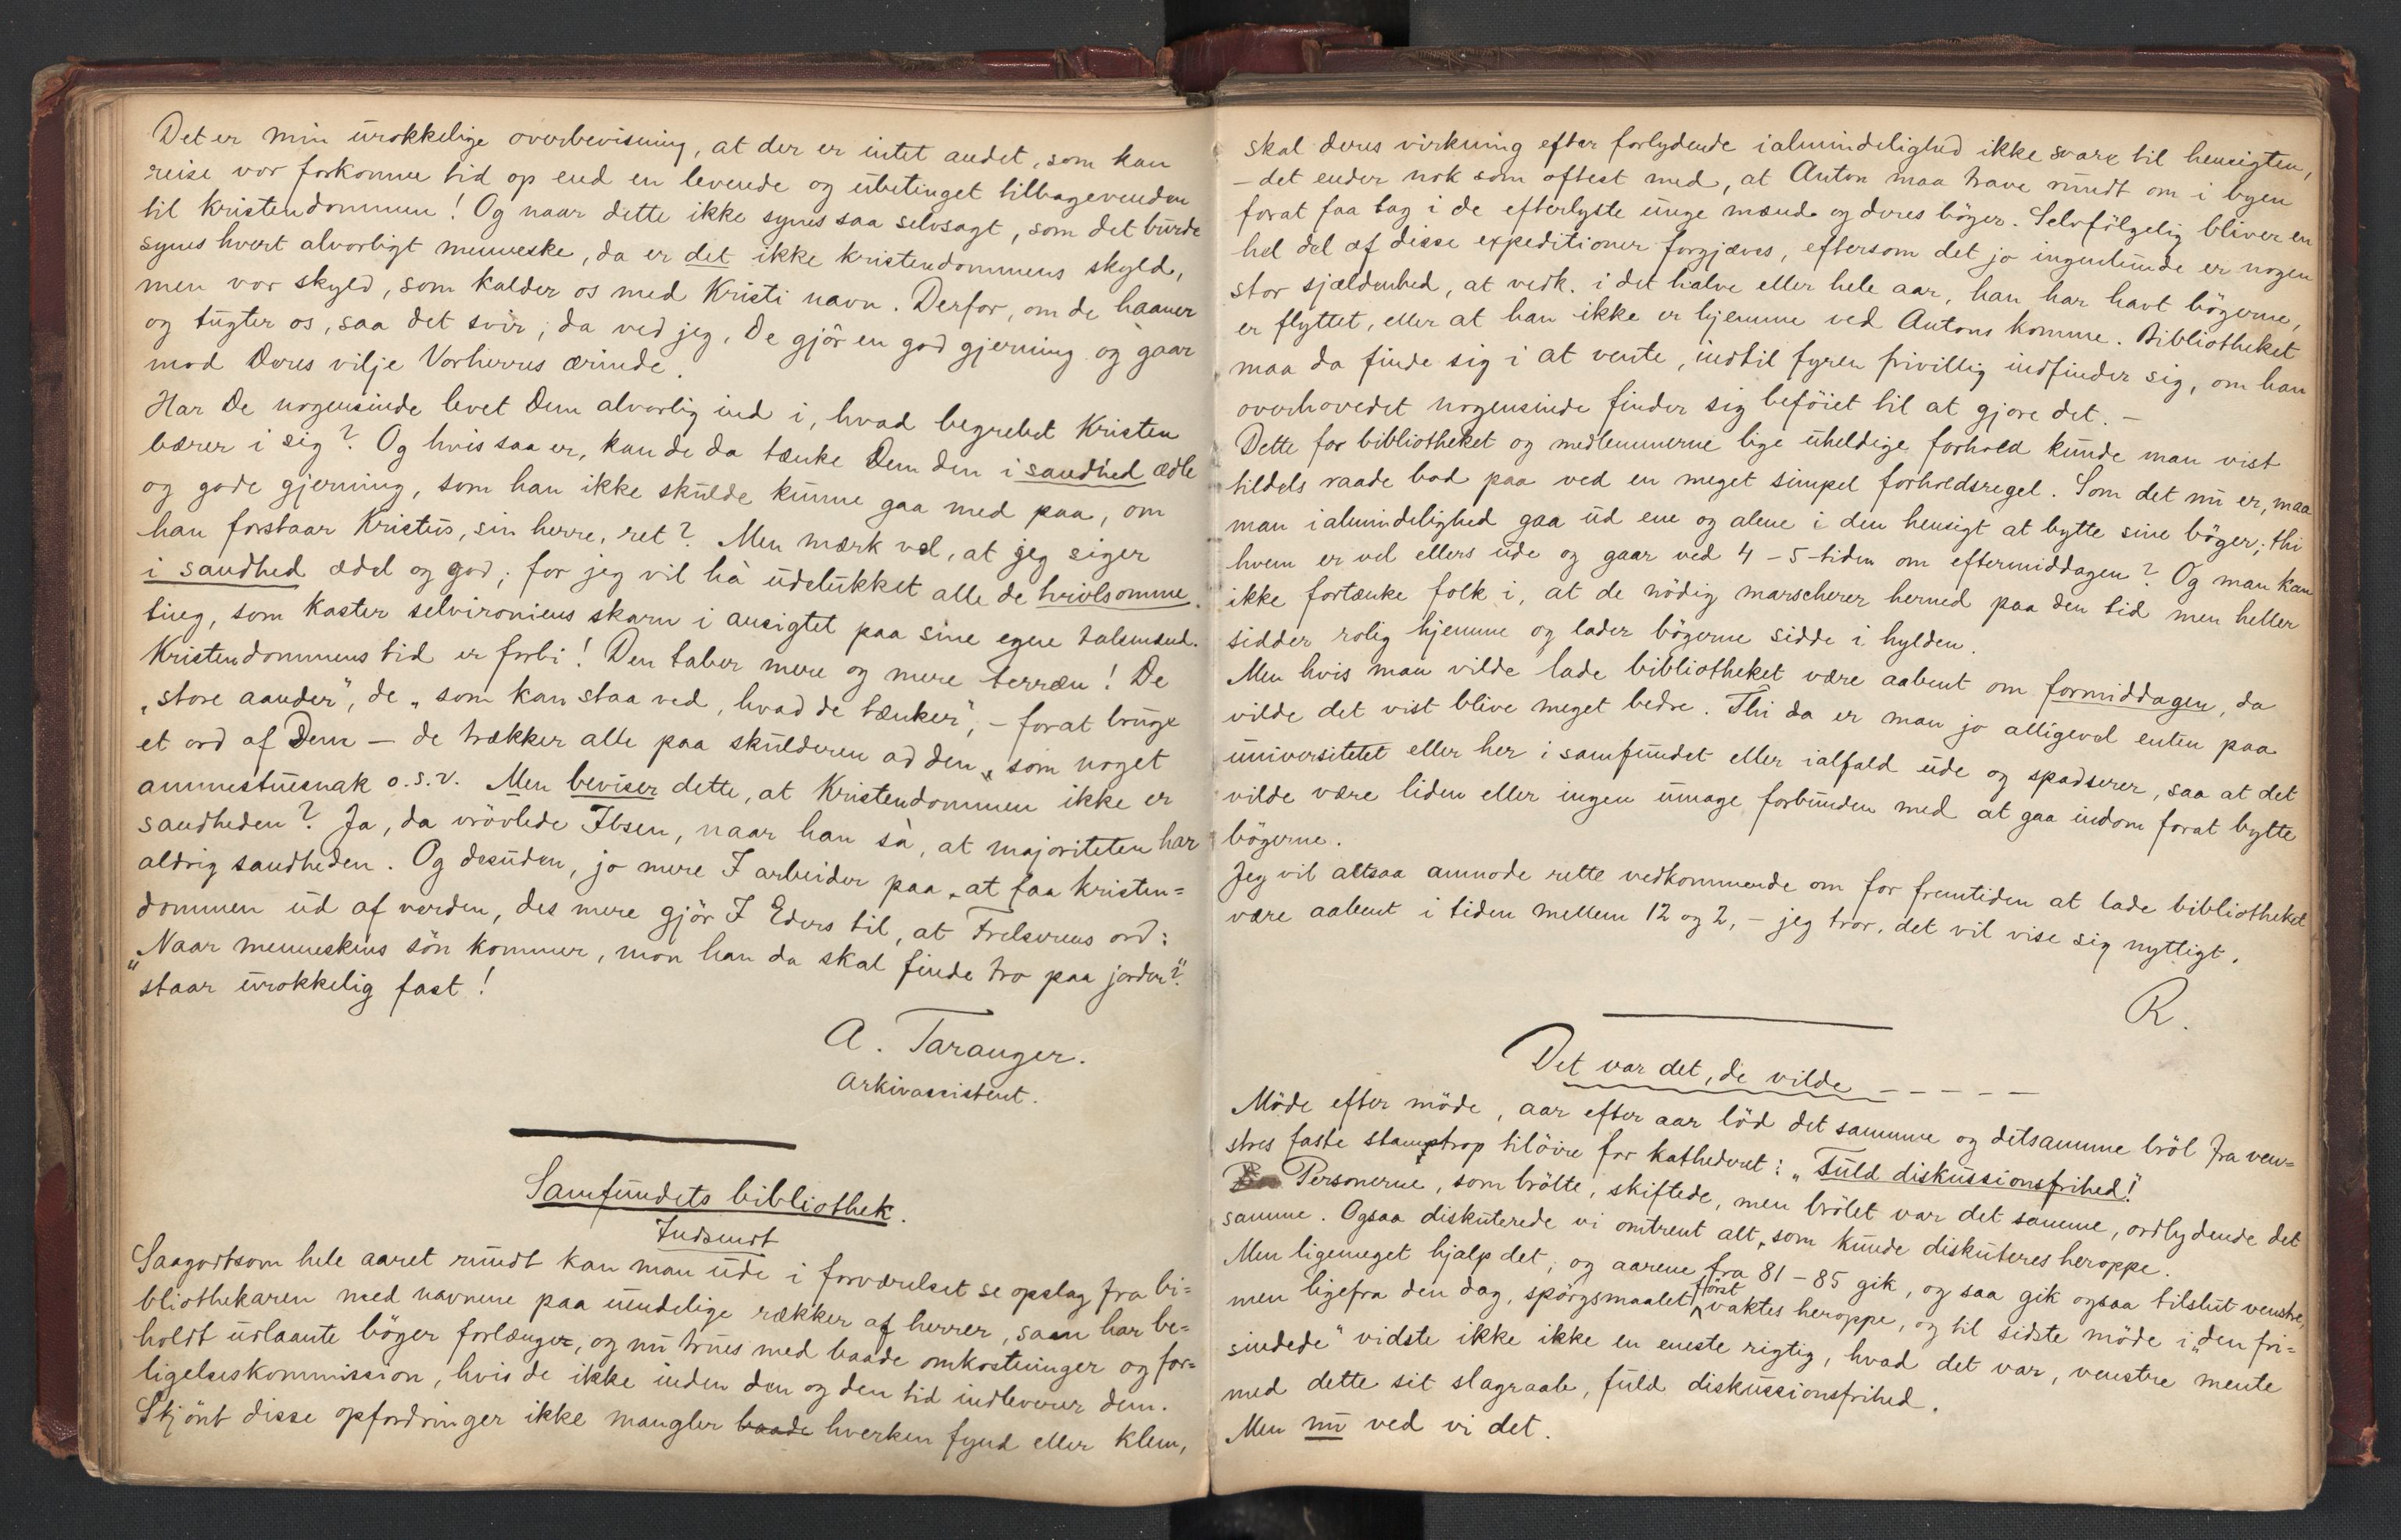 Det er min urokkelige overbevisning, at der er intet andet, som kan
reise vor forkomne tid op end en levende og ubetinget tilbagevenden
til kristendommen! Og naar dette ikke synes saa selvsagt, som det burde
synes hvert alvorligt menneske, da er det ikke kristendommens skyld,
men vor skyld, som kalder os med Kristi navn. Derfor, om de haaner
og tugter os, saa det svir, da ved jeg, De gjör en god gjerning og gaar
mod Deres vilje Vorherres ærinde.
Har De nogensinde levet Dem alvorlig ind i, hvad begrebet Kristen
bærer i sig? Og hvis saa er, kan de da tænke Dem den i sandhed ædle
og gode gjerning, som han ikke skulde kunne gaa med paa, om
han forstaar Kristus, sin herre, ret? Men mærk vel, at jeg siger
i sandhed ædel og god; for jeg vil ha udelukket alle de tvivlsomme
ting, som kaster selvironiens skarn i ansigtet paa sine egne talsmænd.
Kristendommens tid er forbi! Den taber mere og mere terræn! De
„store aander", de „som kan staa ved, hvad de tænker", – forat bruge
et ord af Dem – de trækker alle paa skulderen ad den, som noget
ammestuesnak o.s.v. Men beviser dette, at Kristendommen ikke er
sandheden? Ja, da vrövlede Ibsen, naar han sa, at majoriteten har
aldrig sandheden. Og desuden, jo mere I arbeider paa at faa kristen=
dommen ud af verden, des mere gjör I Eders til, at Frelserens ord:
„Naar menneskens sön kommer, mon han da skal finde tro paa jorden?"
staar urokkelig fast!
A. Taranger.
Arkivassistent.
Samfundets bibliothek.
Indsendt
Saagodtsom hele aaret rundt kan man ude i forværelset se opslag fra bi=
bliothekaren med navnene paa uendelige rækker af herrer, som har be=
holdt udlaante böger forlænge, og nu trues med baade omkostninger og for=
ligelseskommission, hvis de ikke inden den og den tid indleverer dem.
Skjönt disse opfordringer ikke mangler baade hverken fynd eller klem,
skal deres virkning efter forlydende ialmindelighed ikke svare til hensigten,
– det ender nok som oftest med, at Anton maa trave rundt om i byen
forat faa tag i de efterlyste unge mænd og deres böger. Selvfölgelig bliver en
hel del af disse expeditioner forgjæves, eftersom det jo ingenlunde er nogen
stor sjældenhed, at vedk. i det halve eller hele aar, han har havt bögerne,
er flyttet, eller at han ikke er hjemme ved Antons komme. Bibliotheket
maa da finde sig i at vente, indtil fyren frivillig indfinder sig, om han
overhovedet nogensinde finder sig beföiet til at gjøre det. –
Dette for bibliotheket og medlemmerne lige uheldige forhold kunde man vist
tildels raade bod paa ved en meget simpel forholdsregel. Som det nu er, maa
man ialmindelighed gaa ud ene og alene i den hensigt at bytte sine böger; thi
hvem er vel ellers ude og gaar ved 4 – 5-tiden om eftermiddagen? Og man kan
ikke fortænke folk i, at de nödig marscherer herned paa den tid men heller
sidder rolig hjemme og lader bögerne sidde i hylden.
Men hvis man vilde lade bibliotheket være aabent om formiddagen, da
vilde det vist blive meget bedre. Thi da er man jo alligevel enten paa
universitetet eller her i samfundet eller ialfald ude og spadserer, saa at det
vilde være liden eller ingen umage forbunden med at gaa indom forat bytte
bögerne.
Jeg vil altsaa anmode rette vedkommende om for fremtiden at lade bibliotheket
være aabent i tiden mellem 12 og 2, – jeg tror, det vil vise sig nyttigt.
R.
Det var det, de vilde – – – – –
Möde efter möde, aar efter aar löd det samme og detsamme bröl fra ven=
stres faste stamtrop tilöire for kathedret: „Fuld diskussionsfrihed!"
Personerne, som brölte, skiftede, men brölet var det samme, ordlydende det
samme. Ogsaa diskuterede vi omtrent alt, som kunde diskuteres heroppe.
Men ligemeget hjalp det, og aarene fra 81 – 85 gik, og saa gik ogsaa tilslut venstre,
men ligefra den dag, spörgsmaalet först vaktes heroppe, og til sidste möde i „den fri=
sindede" vidste ikke ikke en eneste rigtig, hvad det var, venstre mente
med dette sit slagraab, fuld diskussionsfrihed.
Men nu ved vi det.